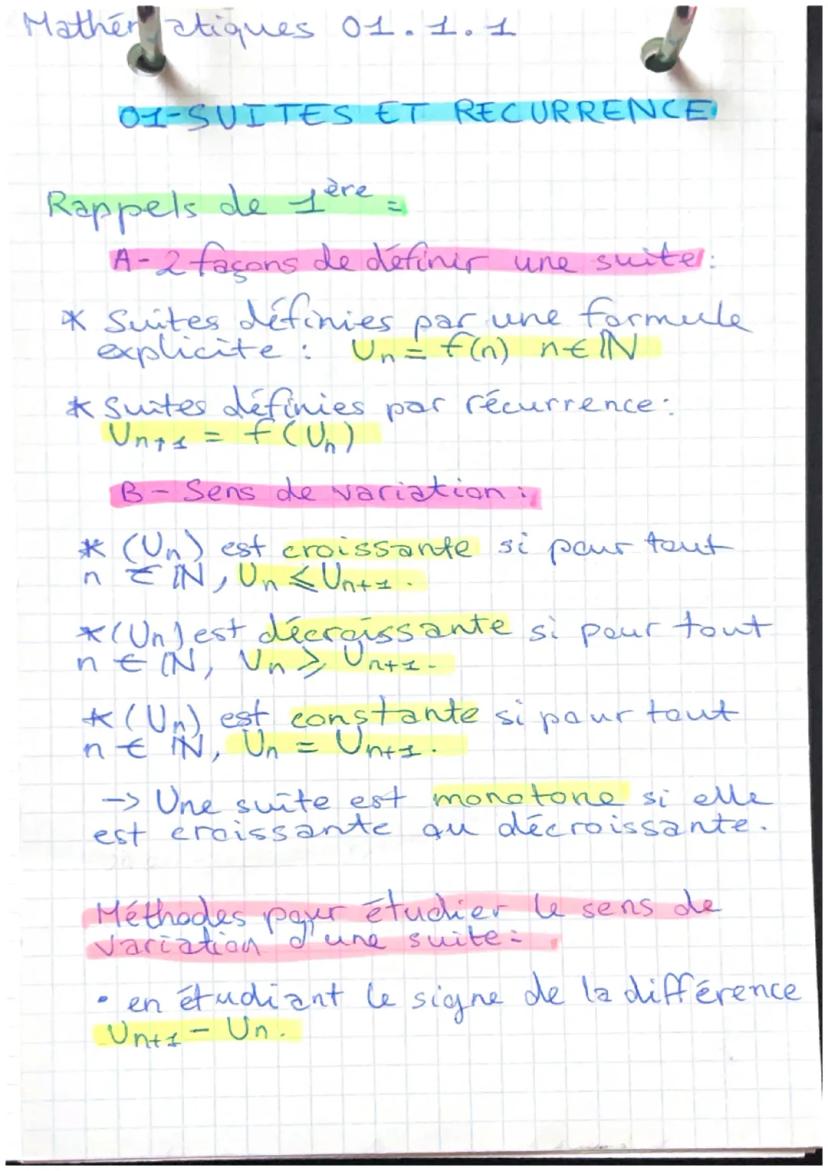 Mathématiques 01.1.1
01-SUITES ET RECURRENCE
Rappels de 1ère =
A- 2 façons de définir une suite:
* Suites définies par une formule
explicite : Un = f(n) n∈ℕ
* Suites définies par récurrence:
Un+1 = f(Un)
B- Sens de variation:
* (Un) est croissante si pour tout
n ∈ ℕ, Un ⩽ Un+1.
* (Un) est décroissante si pour tout
n ∈ ℕ, Un ⩾ Un+1.
* (Un) est constante si pour tout
n ∈ ℕ, Un = Un+1.
-> Une suite est monotone si elle
est croissante ou décroissante.
Méthodes pour étudier le sens de
variation d'une suite:
• en étudiant le signe de la différence
Un+1 - Un.